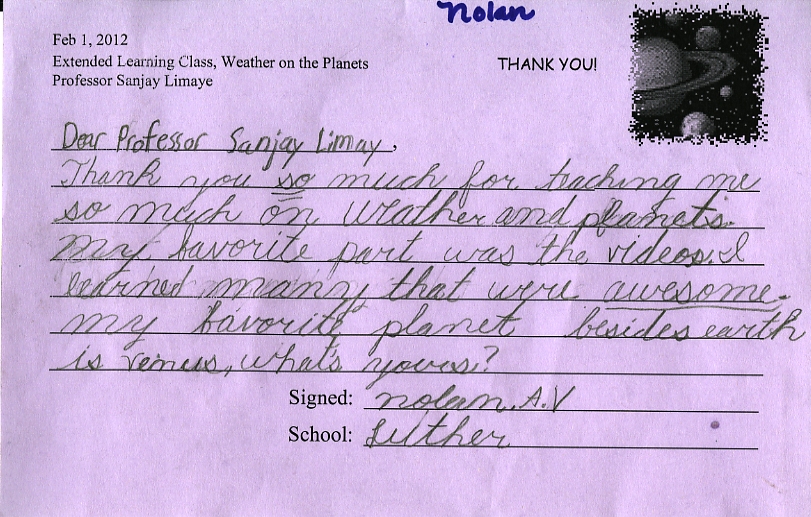 Nolan
Feb 1, 2012
Extended Learning Class, Weather on the Planets
Professor Sanjay Limaye
THANK YOU!
Dear Professor Sanjay Limay,
Thank you so much for teaching me
so much on weather and planets.
my favorite part was the videos. I
learned many that were awesome.
my favorite planet besides earth
is venus, what's yours?
Signed: nolan. A.V
School: Luther